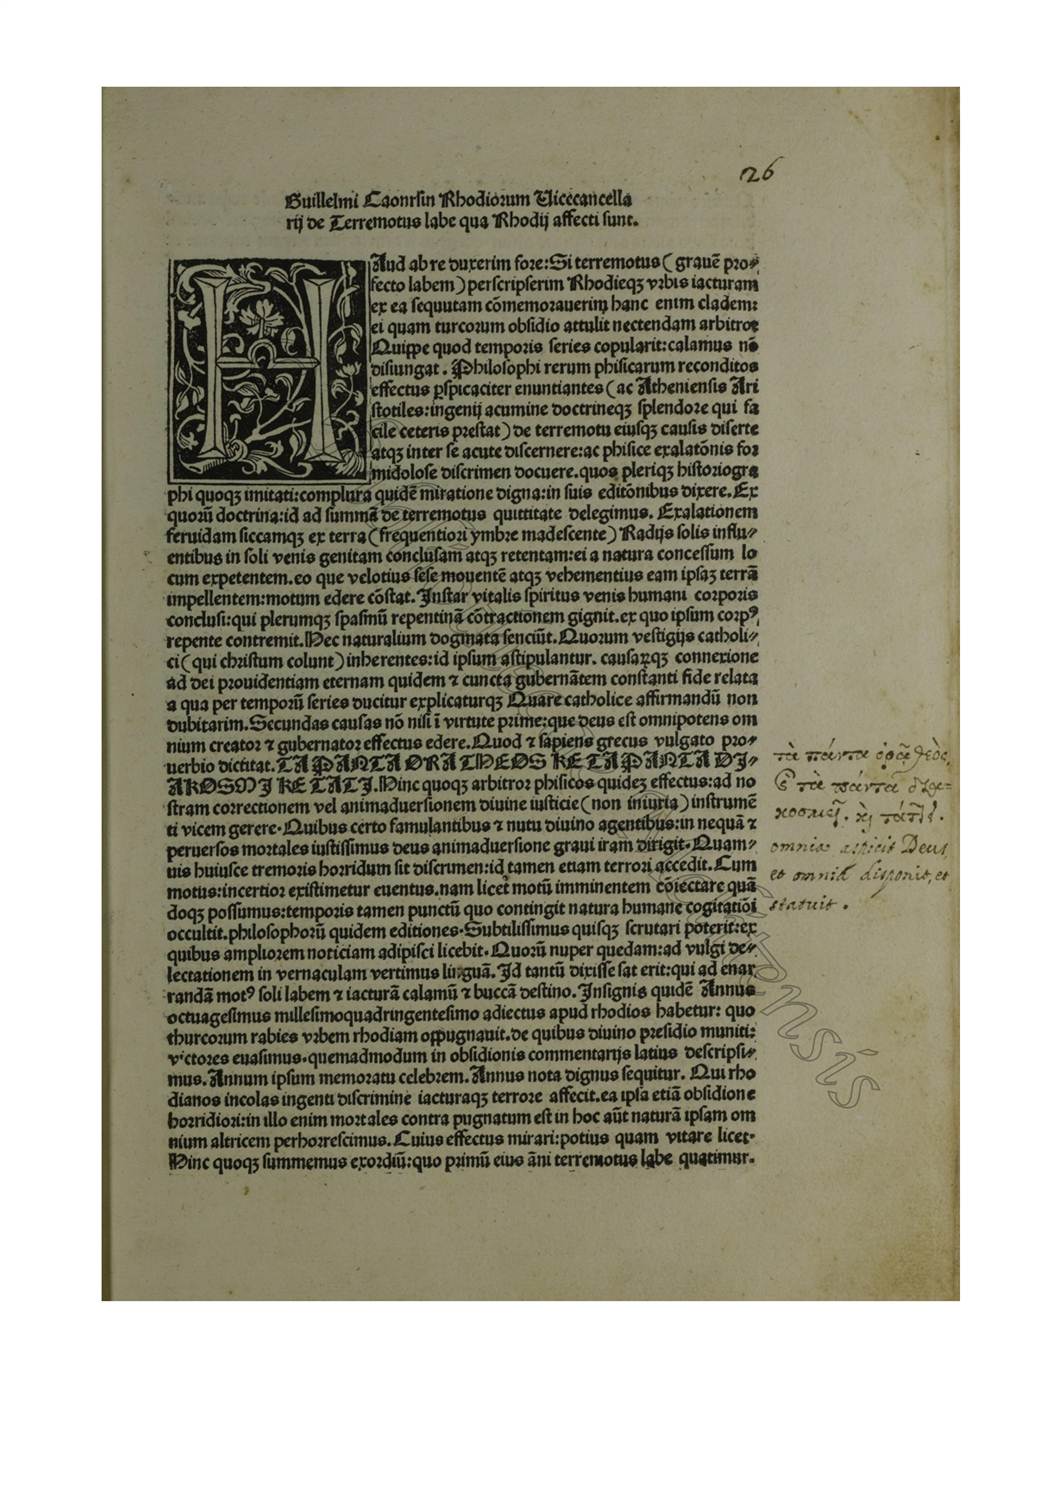 26
Guillelmi Caonrsin Rhodiorum Uicecancella
rij de Terremotus labe qua Rhodij affecti sunt.
HAud ab re duxerim fore:Si terremotus (grauē pro⸗
fecto labem) perscripserim Rhodieqꝫ vrbis iacturam
ex ea sequutam cōmemorauerim hanc enim cladem:
ei quam turcorum obsidio attulit nectendam arbitror
Quippe quod temporis series copularit:calamus nō
disiungat. Philosophi rerum phisicarum reconditos
effectus ꝑspicaciter enuntiantes (ac Atheniensis Ari
stotiles:ingenij acumine doctrineqꝫ splendore qui fa
cile ceteris prestat) de terremotu eiusqꝫ causis diserte
atqꝫ inter se acute discernere:ac phisice exalatōnis for
midolose discrimen docuere.quos pleriqꝫ historiogra
phi quoqꝫ imitati:complura quidē miratione digna:in suis editōnibus dixere. Ex
quorū doctrina:id ad summā de terremotus quittitate delegimus. Exalationem
feruidam siccamqꝫ ex terra (frequentiori ymbre madescente) Radijs solis influ⸗
entibus in soli venis genitam conclusam atqꝫ retentam:ei a natura concessum lo
cum expetentem.eo que velotius sese mouentē atqꝫ vehementius eam ipsaꝫ terrā
impellentem:motum edere cōstat. Instar vitalis spiritus venis humani corporis
conclusi:qui plerumqꝫ spasmū repentinā cōtractionem gignit.ex quo ipsum corpꝰ
repente contremit.Hec naturalium dogmata senciūt.Quorum vestigijs catholi⸗
ci (qui christum colunt) inherentes:id ipsum astipulantur. causaꝝqꝫ connexione
ad dei prouidentiam eternam quidem ⁊ cuncta gubernātem constanti fide relata
a qua per temporū series ducitur explicaturqꝫ Quare catholice affirmandū non
dubitarim.Secundas causas nō nisi ī virtute prime:que deus est omnipotens om
nium creator ⁊ gubernator effectus edere.Quod ⁊ sapiens grecus vulgato pro⸗
uerbio dictitat. TA PANTA ORA THEOS KE TA PANTA DI⸗
AKOSMI KE TATI.Hinc quoqꝫ arbitror phisicos quideꝫ effectus:ad no
stram correctionem vel animaduersionem diuine iusticie (non iniuria) instrumē
ti vicem gerere. Quibus certo famulantibus ⁊ nutu diuino agentibus:in nequā ⁊
peruersos mortales iustissimus deus animaduersione graui iram dirigit. Quam⸗
uis huiusce tremoris horridum sit discrimen:id tamen etiam terrori accedit. Cum
motus:incertior existimetur euentus.nam licet motū imminentem cōiectare quā
doqꝫ possumus:temporis tamen punctū quo contingit natura humane cogitatiōi
occultit.philosophorū quidem editiones. Subtilissimus quisqꝫ scrutari poterit:ex
quibus ampliorem noticiam adipisci licebit. Quorū nuper quedam:ad vulgi de⸗
lectationem in vernaculam vertimus linguā. Id tantū dixisse sat erit:qui ad enar
randā motꝰ soli labem ⁊ iacturā calamū ⁊ buccā destino. Insignis quidē Annus
octuagesimus millesimoquadringentesimo adiectus apud rhodios habetur: quo
thurcorum rabies vrbem rhodiam oppugnauit.de quibus diuino presidio muniti:
victores euasimus.quemadmodum in obsidionis commentarijs latius descripsi⸗
mus. Annum ipsum memoratu celebrem. Annus nota dignus sequitur. Qui rho
dianos incolas ingenti discrimine iacturaqꝫ terrore affecit.ea ipsa etiā obsidione
horridiori:in illo enim mortales contra pugnatum est in hoc aūt naturā ipsam om
nium altricem perhorrescimus. Cuius effectus mirari:potius quam vitare licet.
Hinc quoqꝫ summemus exordiū:quo primū eius āni terremotus labe quatimur.
τὰ πάντα ὁρᾷ θεὸς,
τὰ πάντα δια-
κοσμεῖ.
omnia aspicit Deus,
et omnia disponit, et
statuit.